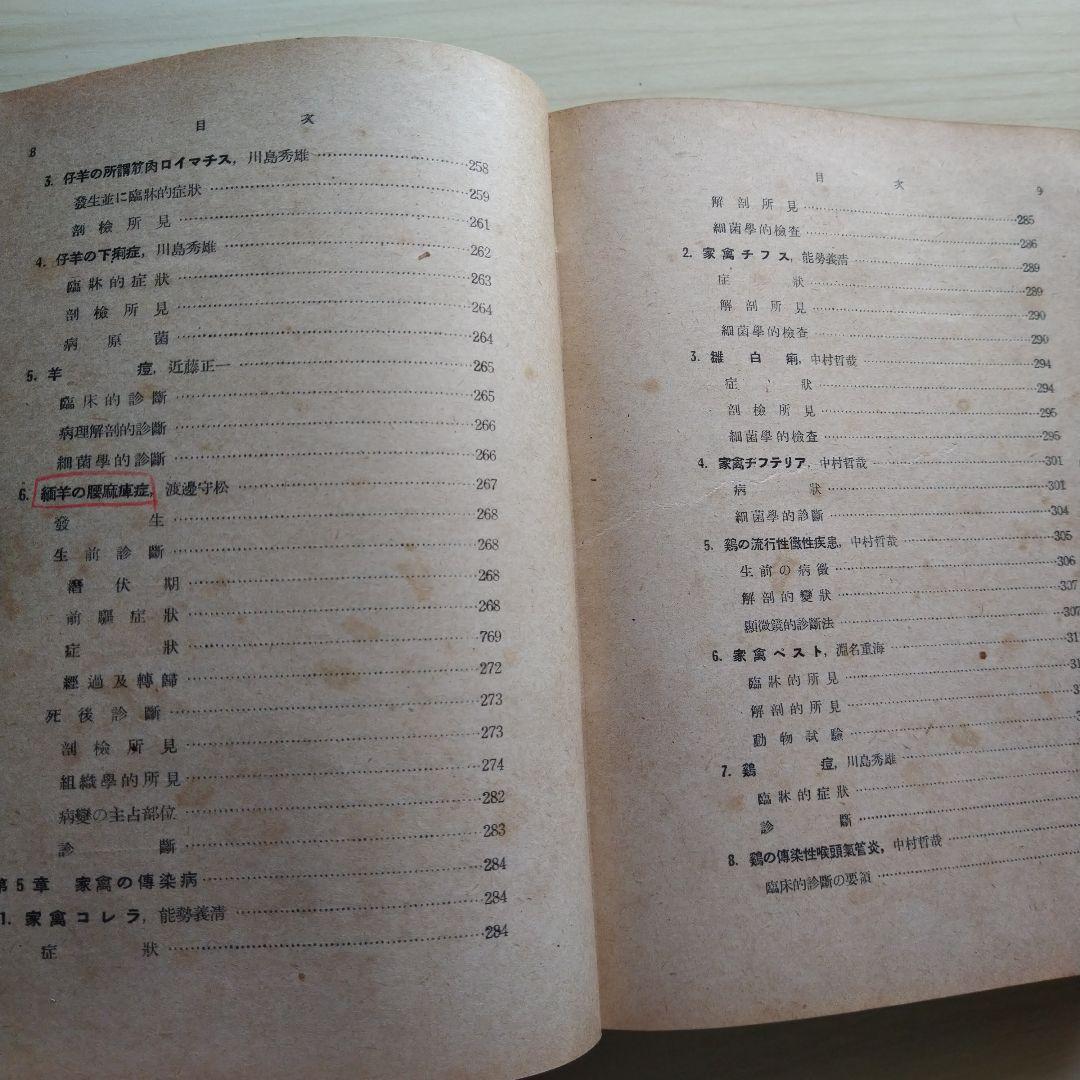 8
目次
3. 仔羊の所謂筋肉ロイマチス, 川島秀雄……258
發生並に臨牀的症狀……259
剖檢所見……261
4. 仔羊の下痢症, 川島秀雄……262
臨牀的症狀……263
剖檢所見……264
病原菌……264
5. 羊痘, 近藤正一……265
臨床的診斷……265
病理解剖的診斷……266
細菌學的診斷……266
6. 緬羊の腰麻痺症, 渡邊守松……267
發生……268
生前診斷……268
潛伏期……268
前驅症狀……268
症狀……769
經過及轉歸……272
死後診斷……273
剖檢所見……273
組織學的所見……274
病變の主占部位……282
診斷……283
第5章 家禽の傳染病……284
1. 家禽コレラ, 能勢義清……284
症狀……284
目次
9
解剖所見……285
細菌學的檢査……286
2. 家禽チフス, 能勢義清……289
症狀……289
解剖所見……290
細菌學的檢査……290
3. 雛白痢, 中村哲哉……294
症狀……294
剖檢所見……295
細菌學的檢査……295
4. 家禽ヂフテリア, 中村哲哉……301
病狀……301
細菌學的診斷……304
5. 鷄の流行性黴性疾患, 中村哲哉……305
生前の病徵……306
解剖的變狀……307
顯微鏡的診斷法……307
6. 家禽ペスト, 淵名重海……31
臨牀的所見……31
解剖的所見……3
動物試驗……3
7. 鷄痘, 川島秀雄……
臨牀的症狀……
診斷……
8. 鷄の傳染性喉頭氣管炎, 中村哲哉……
臨床的診斷の要領……